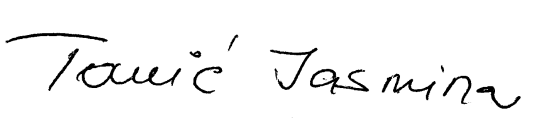 Tomić Jasmina